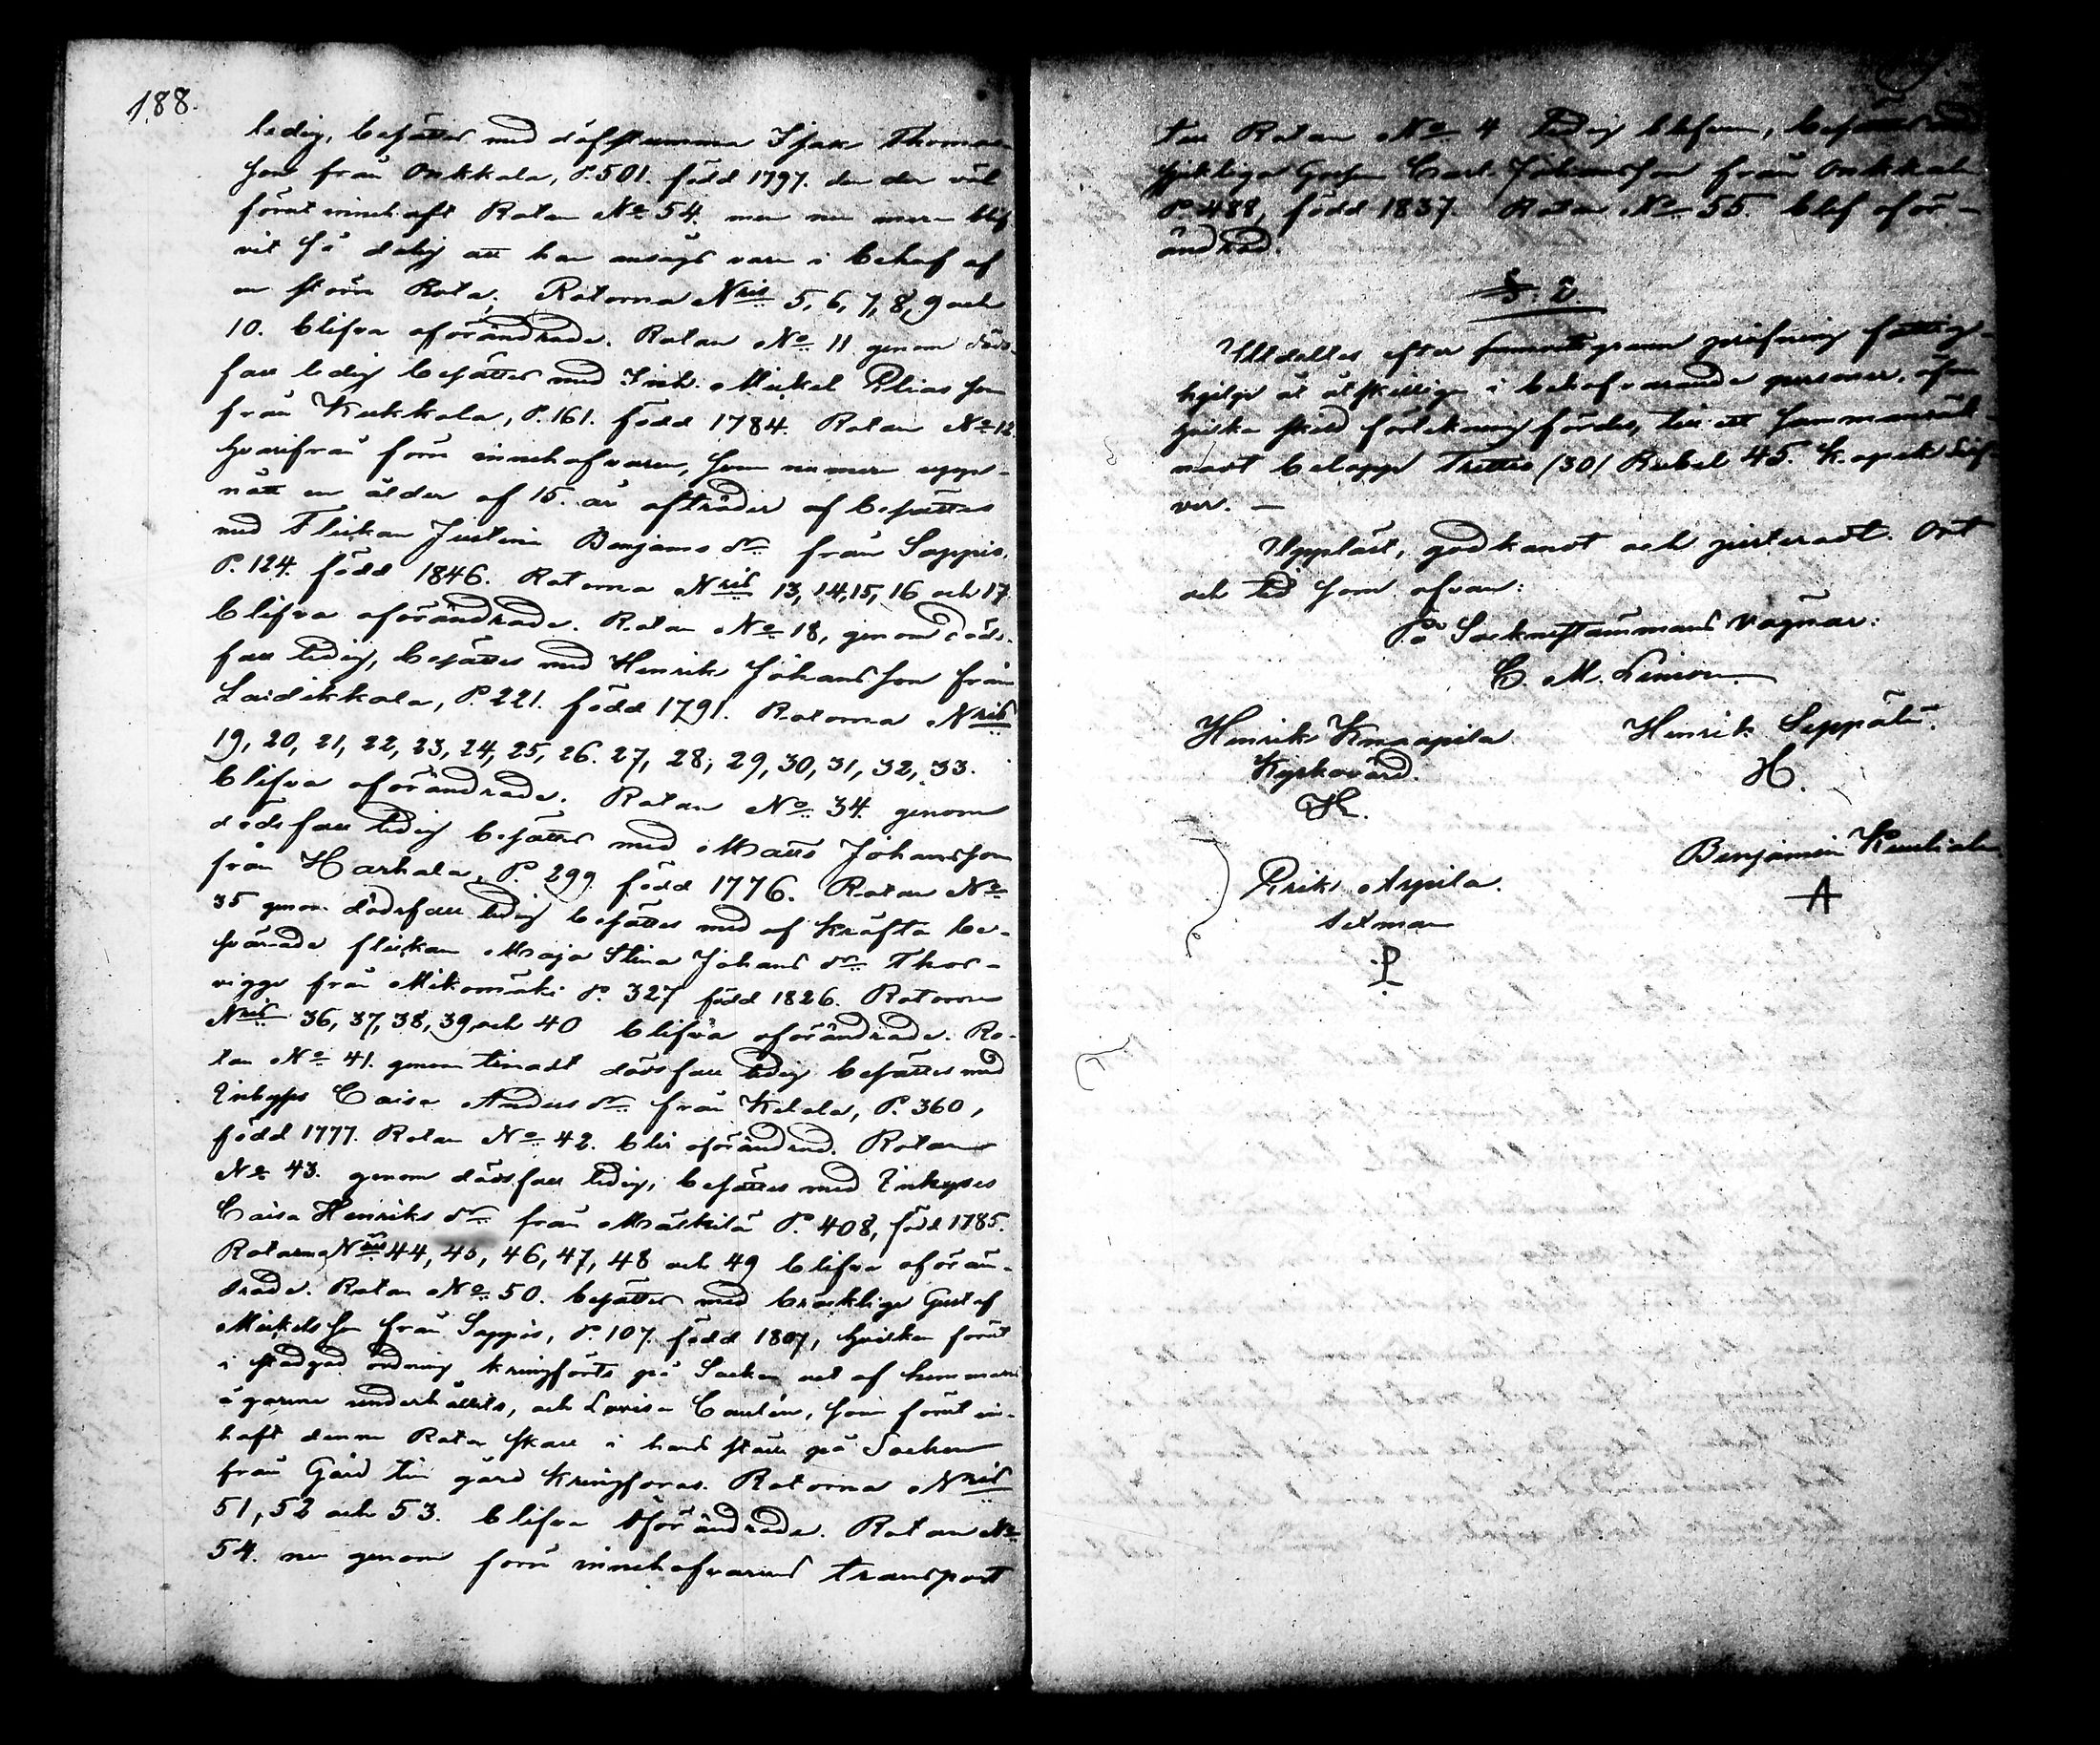 188.
ledig, besättes med döfstumma Isak Thomas
son från Onkkala, P. 501. född 1797. den der väl
förut innehaft Rotan No 54. men nu mera blif
vit så dålig att han ansågs vara i behof af
en större Rota; Rotorna Nris 5, 6, 7, 8, 9 och
10. blifva oförändrade. Rotan No 11 genom döds-
fall ledig besättes med Inh. Mickel Eliasson
från Kukkola, P. 161. född 1784. Rotan No 12
hvarifrån förra innehafvaren, som numera upp-
nått en ålder af 15. år afträder af besättes
med Flickan Justina Benjamsdr från Sappis,
P. 124. född 1846. Rotorna Nris 13, 14, 15, 16 och 17
blifva oförändrade. Rotan No 18, genom döds-
fall ledig, besättes med Henrik Johansson från
Laidikkala, P. 221. född 1791. Rotorna Nris
19, 20, 21, 22, 23, 24, 25, 26. 27, 28, 29, 30, 31, 32, 33.
blifva oförändrade. Rotan No 34. genom
dödsfall ledig besättes med Matts Johansson
från Harhala, P. 299 född 1776. Rotan No
35 genom dödsfall ledig besättes med af kräfta be-
svärade flickan Maja Stina Johansdr Thor-
vigge från Mikomäki P. 327 född 1826. Rotorna
Nris 36, 37, 38, 39, och 40 blifva oförändrade. Ro-
tan No 41. genom timadt dödsfall ledig besättes med
Enkyss Caisa Andersdr från Ketola, P. 360,
född 1777. Rotan No 42. blir oförändrad. Rotan
No 43. genom dödsfall ledig, besättes med Enkyss
Caisa Henriksdr från Mälkilä P. 408, född 1785.
Rotorna Nris 44, 45, 46, 47, 48 och 49 blifva oförän-
drade. Rotan No 50. besättes med bräcklige Gustaf
Mickelsson från Sappis, P. 107. född 1807, hvilken förut
i stadgad ordning kringförts på Socken och af hemmans
ägarene underhållits, och Lovisa Caulén, som förut in-
haft denna Rota skall i hans ställe på Socken
från Gård till gård kringföras. Rotorna Nris
51, 52 och 53. blifva oförändrade. Rotan No
54. nu genom förra innehafvarens transport
till Rotan No 4 ledig blifven, besättes med
sjuklige Gossen Carl Johansson från Onkkala
P. 488, född 1837. Rotan No 55. blef oför-
ändrad.
§. 2.
Utdeltes efter grann pröfning fattig-
hjelp åt åtskillige i behof varande personer, öfver
hvilka särskild förtekning fördes, till ett sammanräk-
nadt belopp Trettio (30) Rubel 45. Kopek Silf-
ver. —
Uppläst, godkändt och justeradt. Ort
och tid som ofvan:
På Sockenstämmans vägnar:
C. M. Limon
Henrik Knaapila
Kyrkovärd.
Henrik Seppälä
H.
Erik Arpila.
Setman
P
Benjamin
A